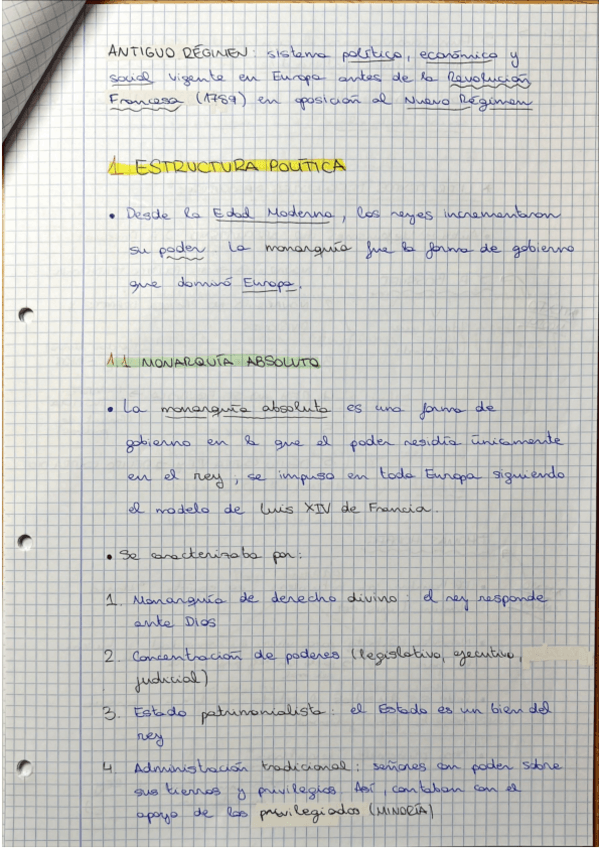 ANTIGUO RÉGIMEN: sistema político, económico y
social vigente en Europa antes de la Revolución
Francesa (1789) en oposición al Nuevo Régimen
1 ESTRUCTURA POLÍTICA
• Desde la Edad Moderna, los reyes incrementaron
su poder. La monarquía fue la forma de gobierno
que dominó Europa.
1.1 MONARQUÍA ABSOLUTO
• La monarquía absoluta es una forma de
gobierno en la que el poder residía únicamente
en el rey, se impuso en toda Europa siguiendo
el modelo de Luis XIV de Francia.
• Se caracterizaba por:
1. Monarquía de derecho divino: el rey responde
ante Dios
2. Concentración de poderes (legislativo, ejecutivo,
judicial)
3. Estado patrimonialista: el Estado es un bien del
rey
4. Administración tradicional: señores con poder sobre
sus tierras y privilegios. Así, contaban con el
apoyo de los privilegiados (MINORÍA)